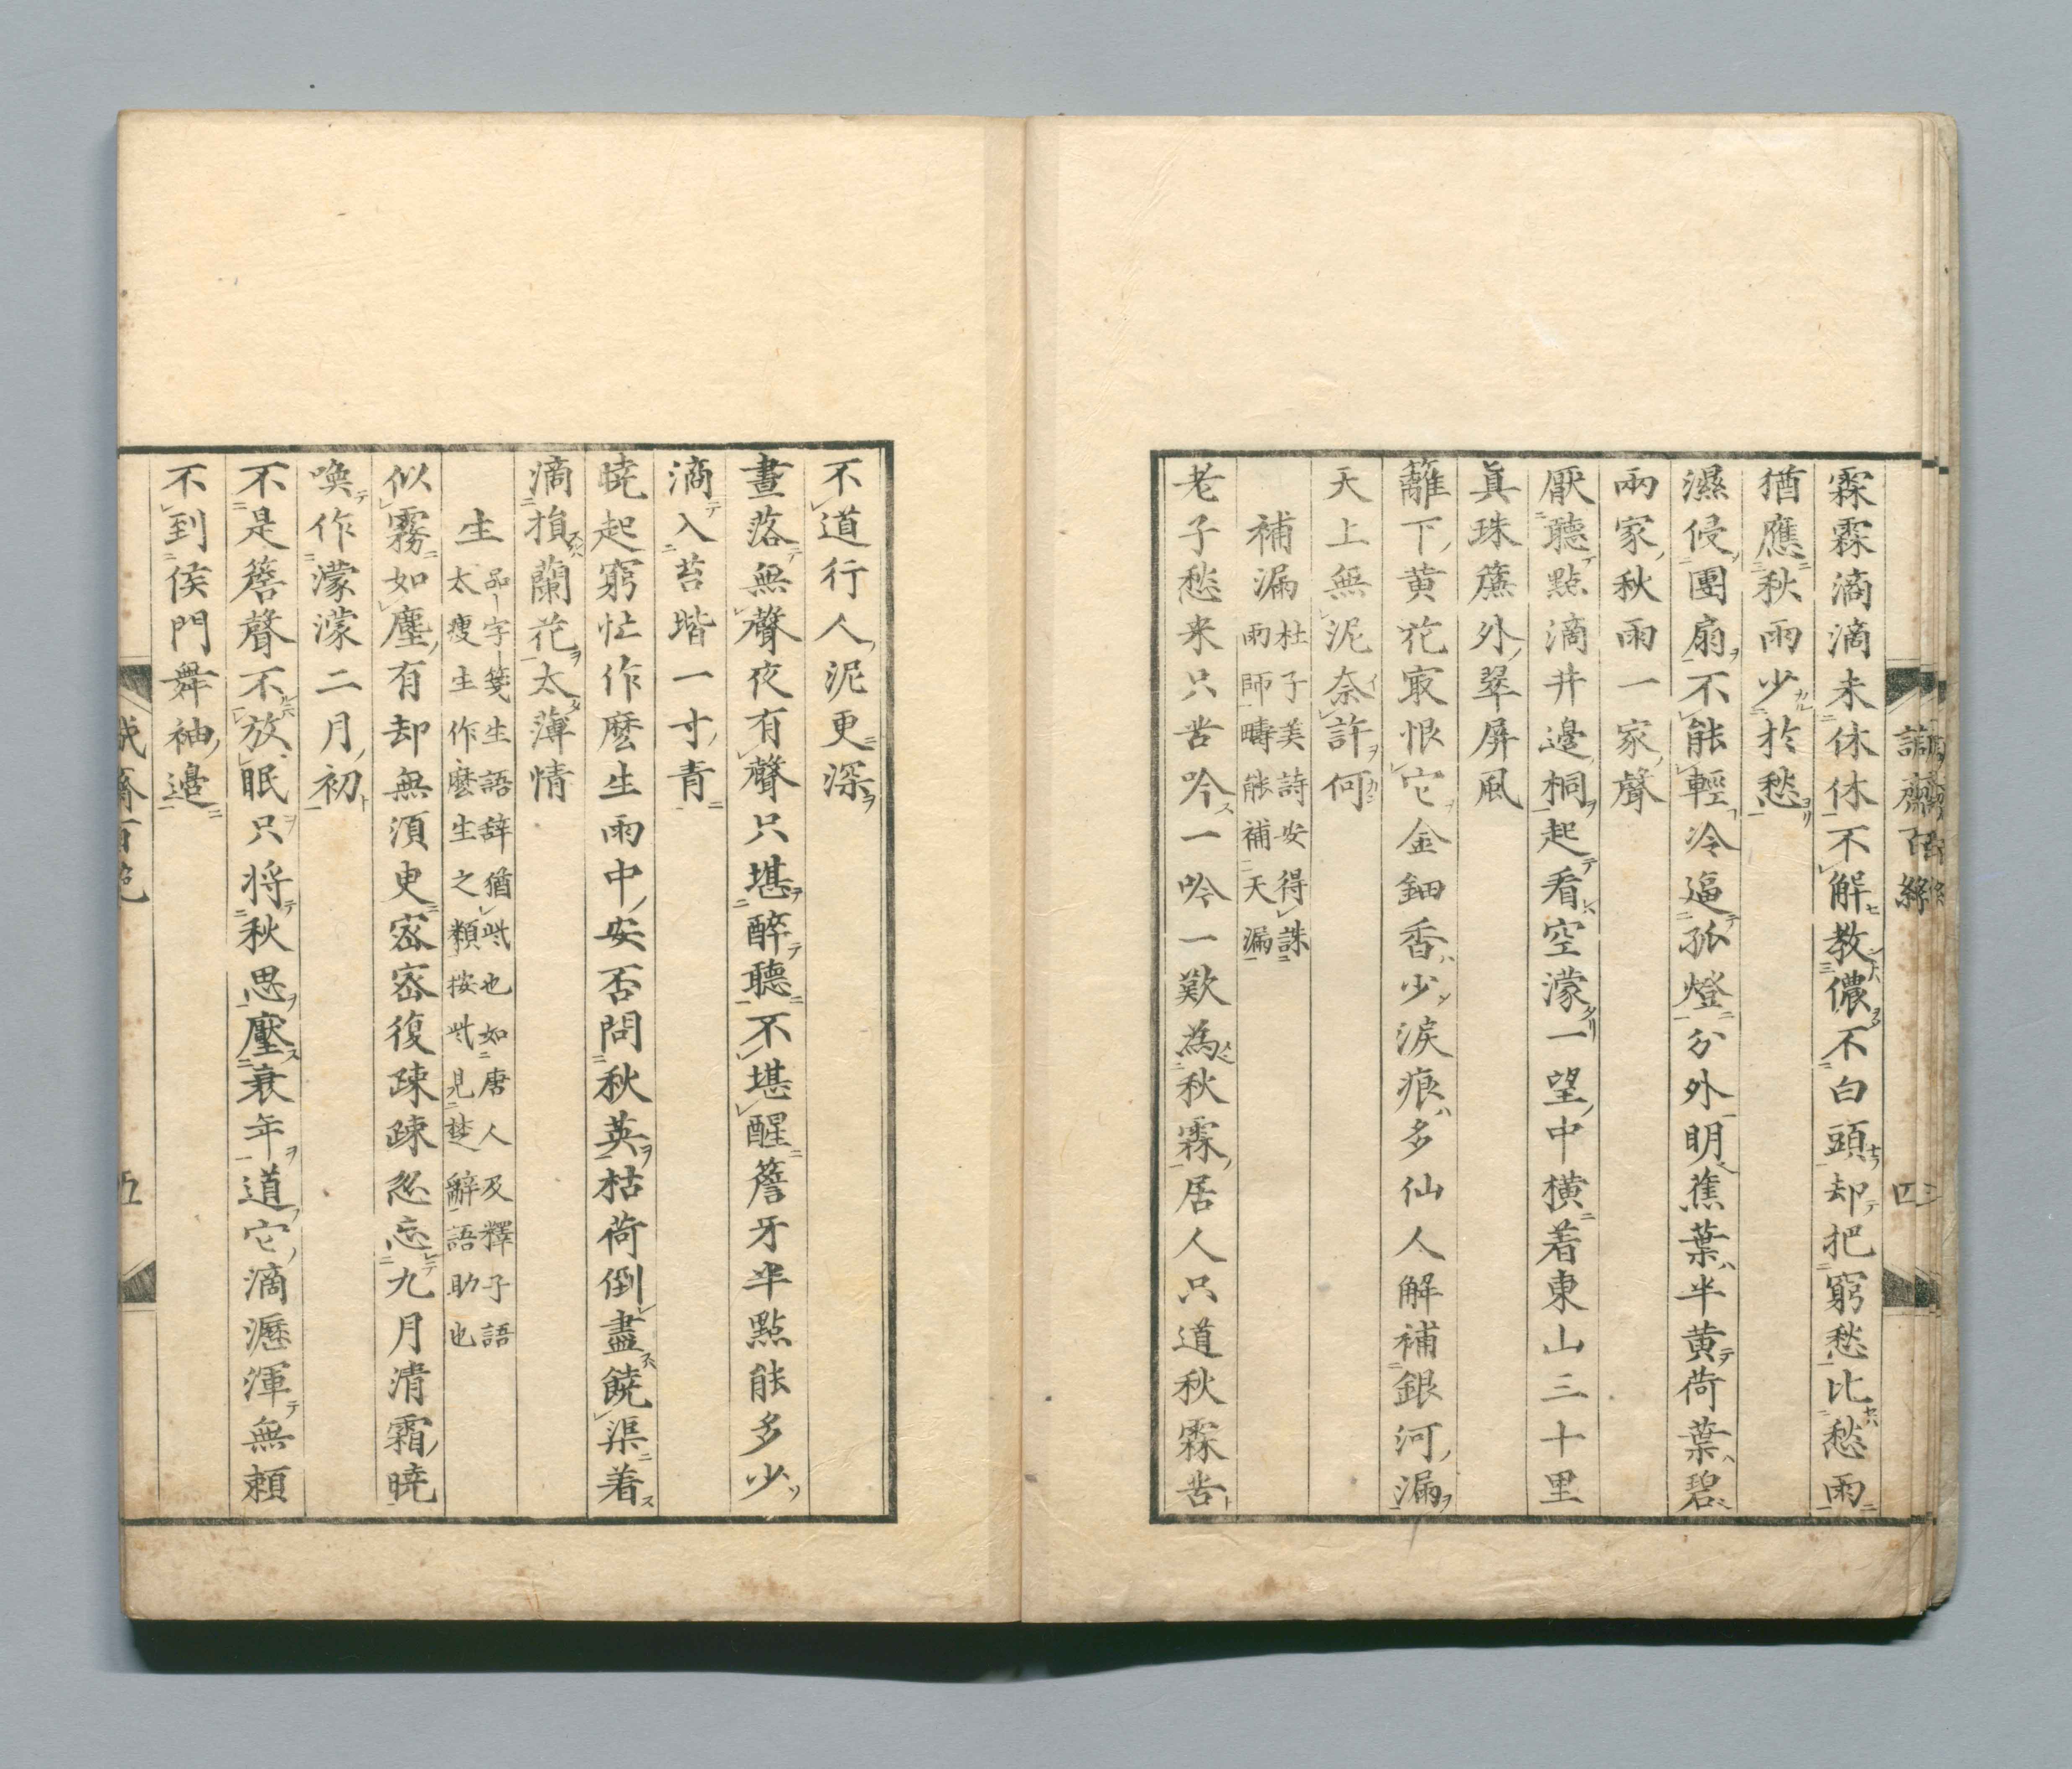 霖霖滴滴未休休不解教儂不白頭却把窮愁比愁雨
猶應秋雨少於愁
濕侵團扇不能輕冷逼孤燈分外明蕉葉半黄荷葉碧
兩家秋雨一家聲
厭聽點滴井邊桐起看空濛一望中横着東山三十里
眞珠簾外翠屏風
籬下黄花㝡恨它金鈿香少淚痕多仙人解補銀河漏
天上無泥奈許何
補漏杜子美詩安得誅
雨師疇能補天漏
老子愁来只苦吟一吟一歎為秋霖居人只道秋霖苦
不道行人泥更深
晝落無聲夜有聲只堪醉聽不堪醒簷牙半點能多少
滴入苔堦一寸青
曉起窮忙作麽生雨中安否問秋英枯荷倒盡饒渠着
滴損蘭花太薄情
生品字箋生語辞猶此也如唐人及釋子語
太瘦生作麽生之類按此見楚辭語助也
似霧如塵有却無須臾密密復疎疎忽忘九月清霜曉
喚作濛濛二月初
不是簷聲不放眠只将秋思壓衰年道它滴瀝渾無頼
不到侯門舞袖邊
誠齋百絶
五